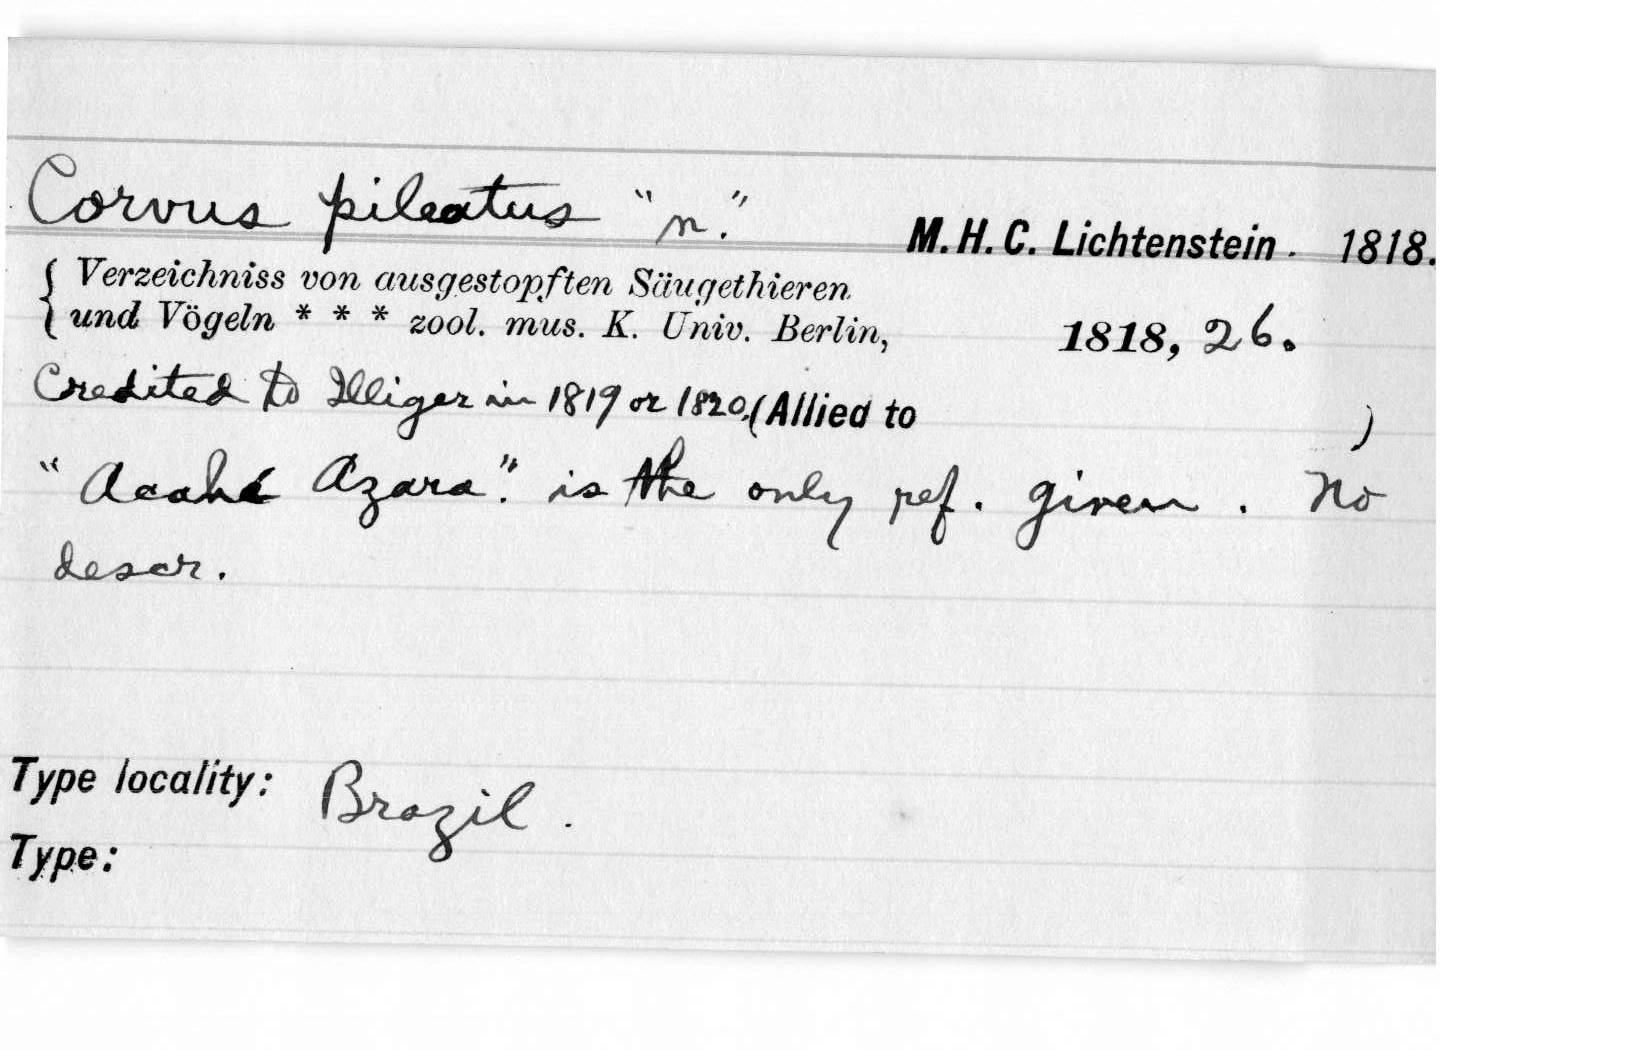 Corvus pileatus "n." M.H.C. Lichtenstein. 1818.
{ Verzeichniss von ausgestopften Säugethieren
und Vögeln * * * zool. mus. K. Univ. Berlin, 1818, 26.
Credited to Illiger in 1819 or 1820. (Allied to )
"Acahé Azara". is the only ref. given. No
descr.
Type locality: Brazil.
Type: